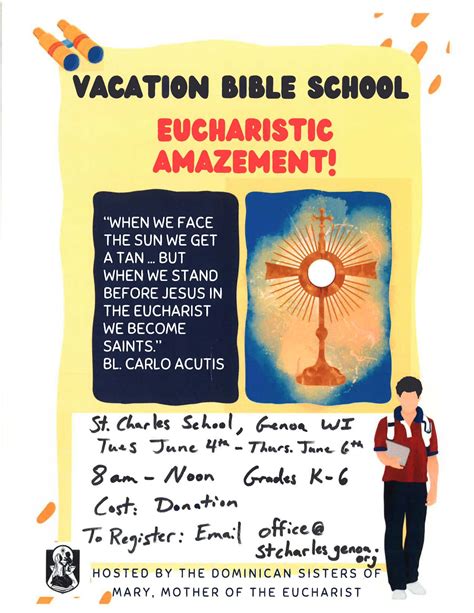 VACATION BIBLE SCHOOL
EUCHARISTIC
AMAZEMENT!
"WHEN WE FACE
THE SUN WE GET
A TAN ... BUT
WHEN WE STAND
BEFORE JESUS IN
THE EUCHARIST
WE BECOME
SAINTS."
BL. CARLO ACUTIS
St. Charles School, Genoa WI
Tues June 4th - Thurs. June 6th
8am - Noon Grades K-6
Cost: Donation
To Register: Email office@
stcharles.genoa.
org
HOSTED BY THE DOMINICAN SISTERS OF
MARY, MOTHER OF THE EUCHARIST